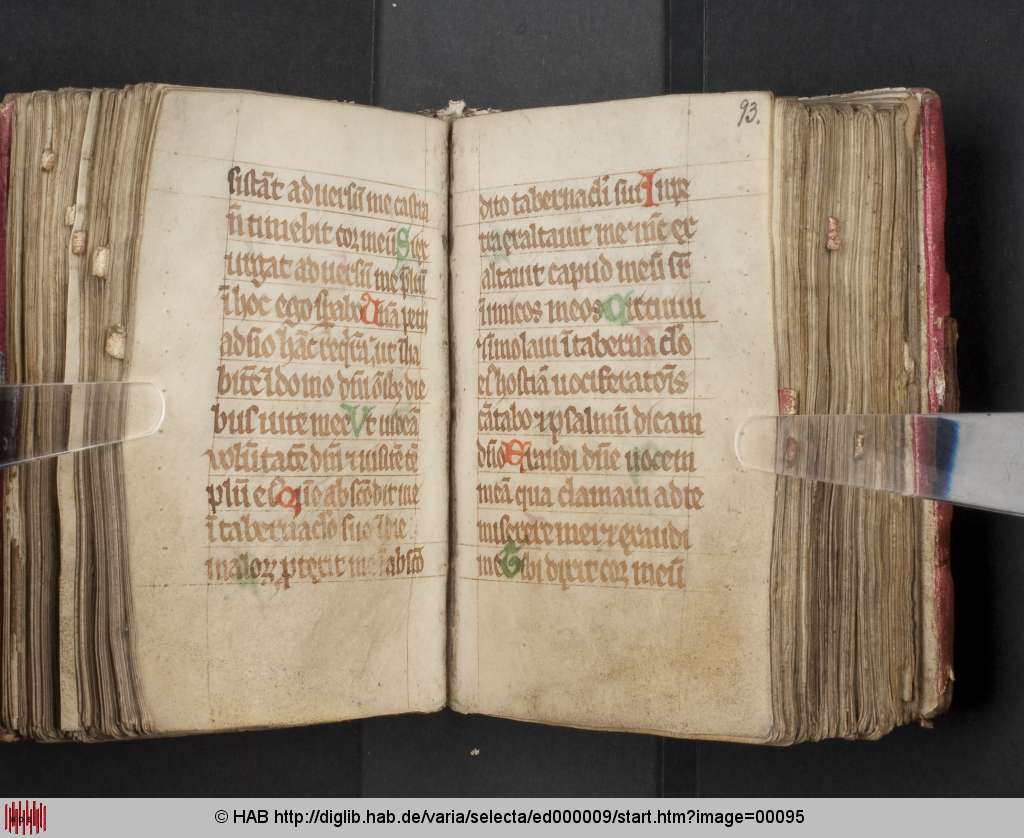 sistāt adversū me castra
n̄ timebit cor meū Si ex
urgat adversū me p̄liū
ī hoc ego sp̄abo Unā petii
a dn̄o hāc reqrā ut īha
bitē ī domo dn̄i ōībz die
bus vite mee Ut videā
volūtatē dn̄i ⁊ visitē tē
plū ei Qn̄o abscōdit me
ī tabernaclo suo ī die
malorz ꝓtexit me ī abscō
93.
dito tabernacli sui I npe
tra exaltavit me ⁊ nūc ex
altavit capud meū sr̄
īnimicos meos Circuivi
⁊ īmolavi ī tabernaclo
eꝰ hostiā vociferatōīs
cātabo ⁊ psalmū dicam
dn̄o Exaudi dn̄e vocem
meā qua clamavi ad te
miserere mei ⁊ exaudi
me Tibi dixit cor meū
© HAB http://diglib.hab.de/varia/selecta/ed000009/start.htm?image=00095